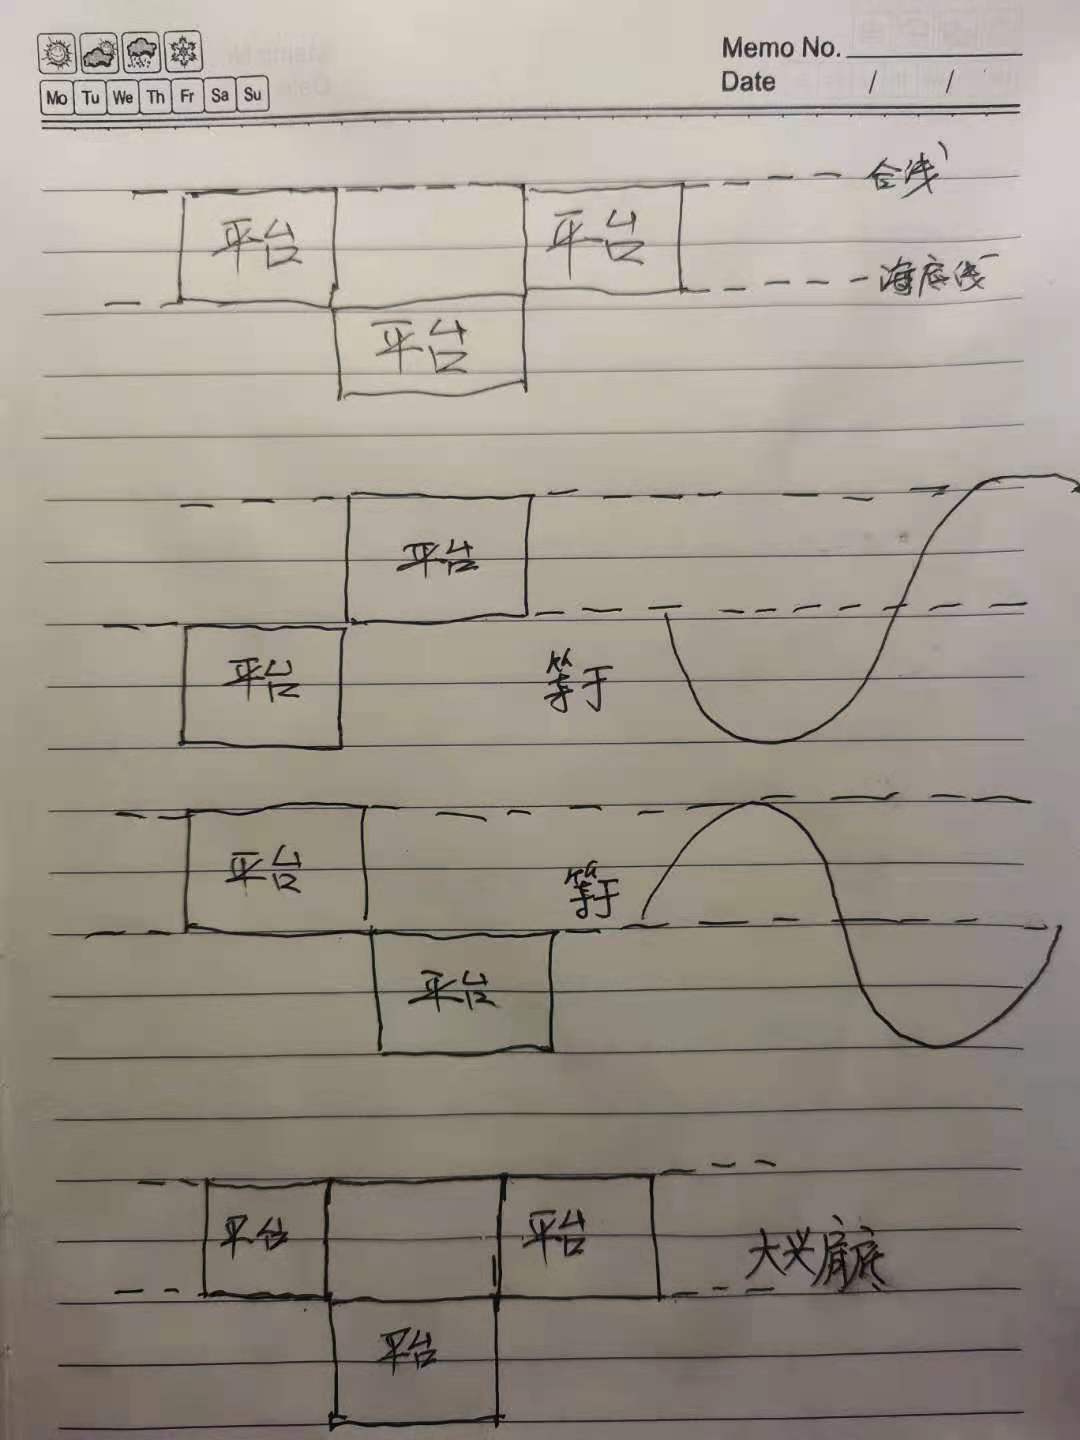 Memo No.
Mo Tu We Th Fr Sa Su
Date / /
平台 平台
海底线
平台
平台
平台
等于
平台
等于
平台
平台 平台
平台